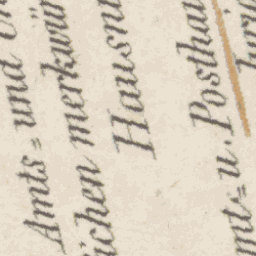 Amts= und
ichen merkwür
Hausnu
mt= u. Posthau